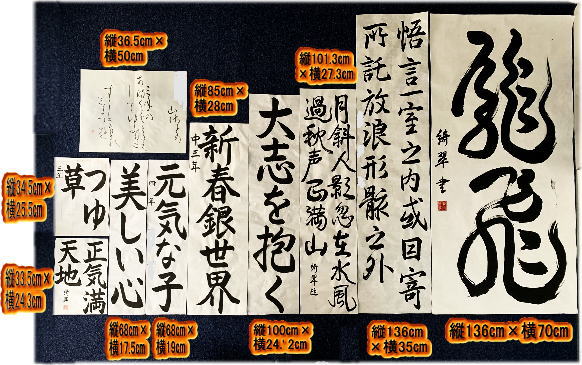 龍飛
綺翠書
悟言一室之内或因寄
所託放浪形骸之外
月斜人影忽在水風
過秋声正満山
綺翠臨
大志を抱く
新春銀世界
中三年
元気な子
美しい心
つゆ
草
正気満
天地
縦36.5cm×
横50cm
縦85cm×
横28cm
縦101.3cm
×横27.3cm
縦34.5cm×
横25.5cm
縦33.5cm×
横24.3cm
縦68cm×
横17.5cm
縦68cm×
横19cm
縦100cm×
横24.2cm
縦136cm
×横35cm
縦136cm×横70cm